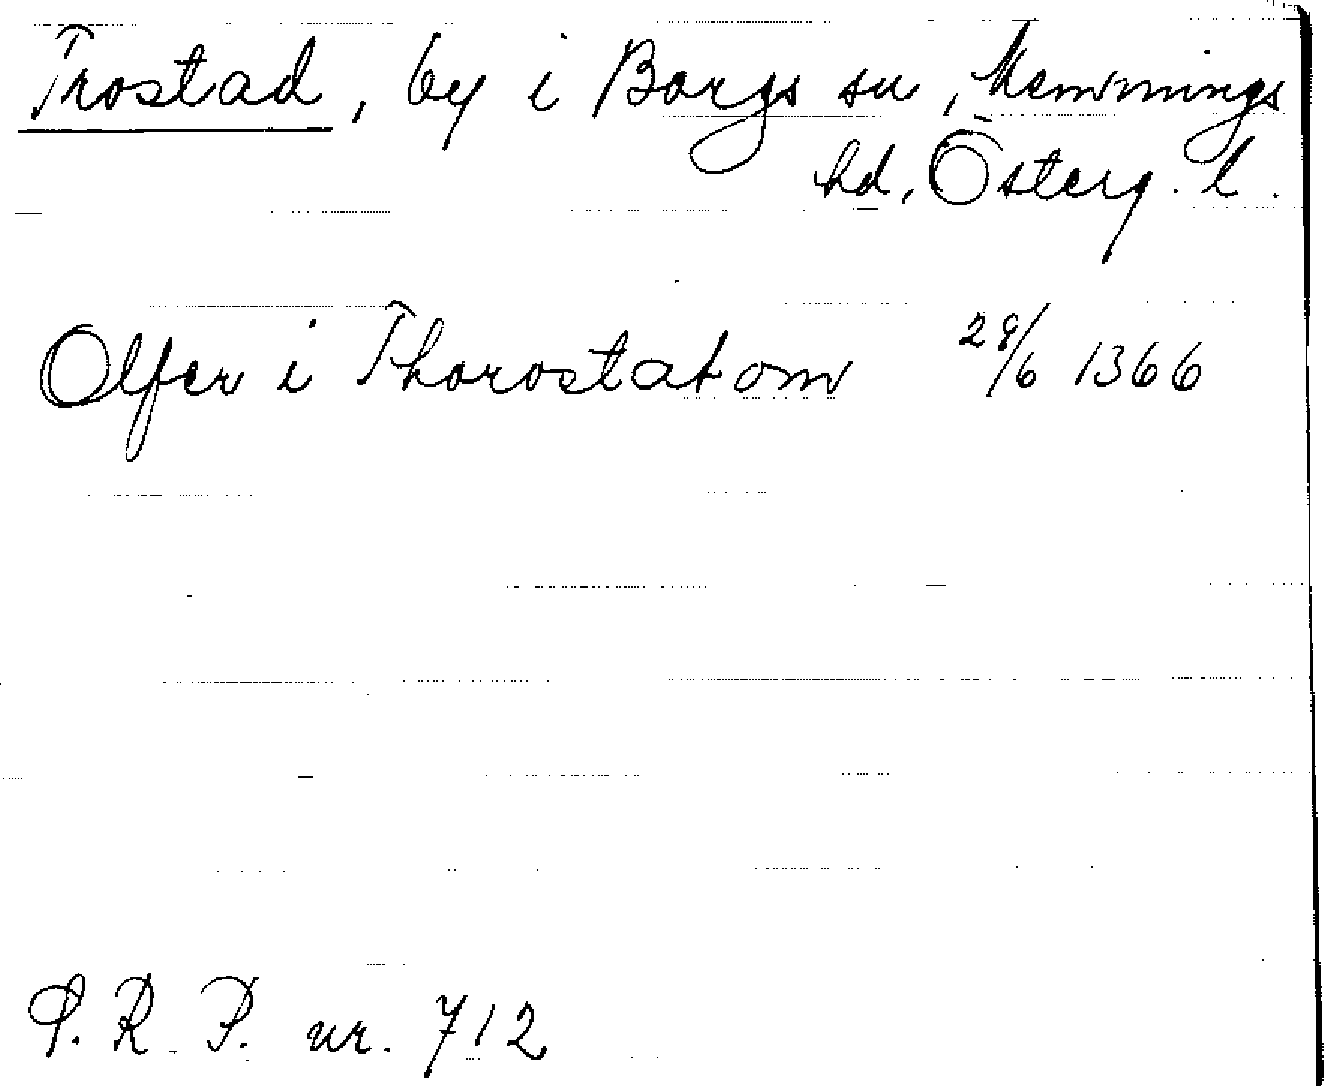 Trostad, by i Borgs sn, Memmings
hd, Österg. l.
Olfer i Thorostatom 28/6 1366
S. R. P. nr. 712